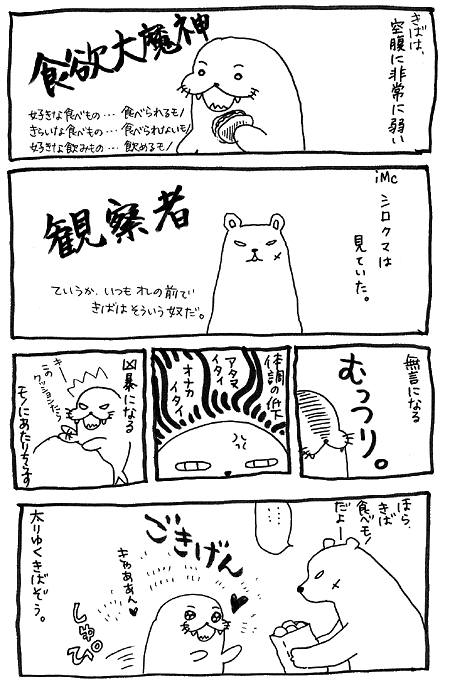 きばは、
空腹に非常に弱い
食欲大魔神
好きな食べもの…食べられるモノ
きらいな食べもの…食べられないモノ
好きな飲みもの…飲めるモノ
iMc
シロクマは
見ていた。
観察者
ていうか、いつもオレの前で
きばはそういう奴だ。
無言になる
むっつり。
体調の低下
アタマ
イタイ
オナカ
イタイ
凶暴になる
キー
この
クッションだっ
モノにあたりちらす
ほら、
きば
食べモノ
だよー
……
ごきげん
きゃああん♥
しゅぴ。
太りゆくきばぞう。